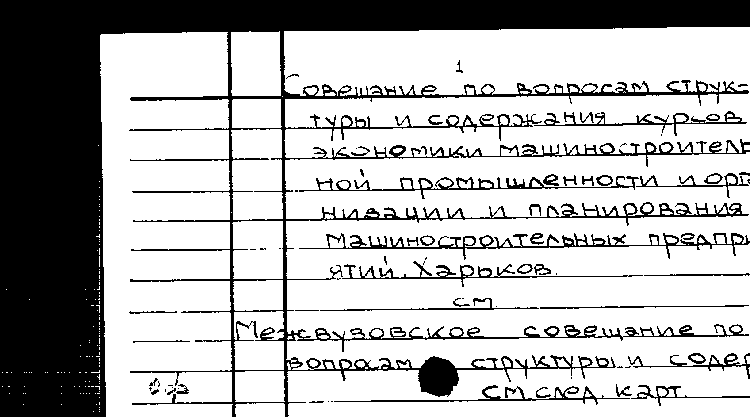 1
Совещание по вопросам струк=
туры и содержания курсов
экономики машиностроитель
ной промышленности и орга
низации и планирования
машиностроительных предпри
ятий. Харьков.
см
Межвузовское совещание по
вопросам структуры и содер
оф см. след. карт.